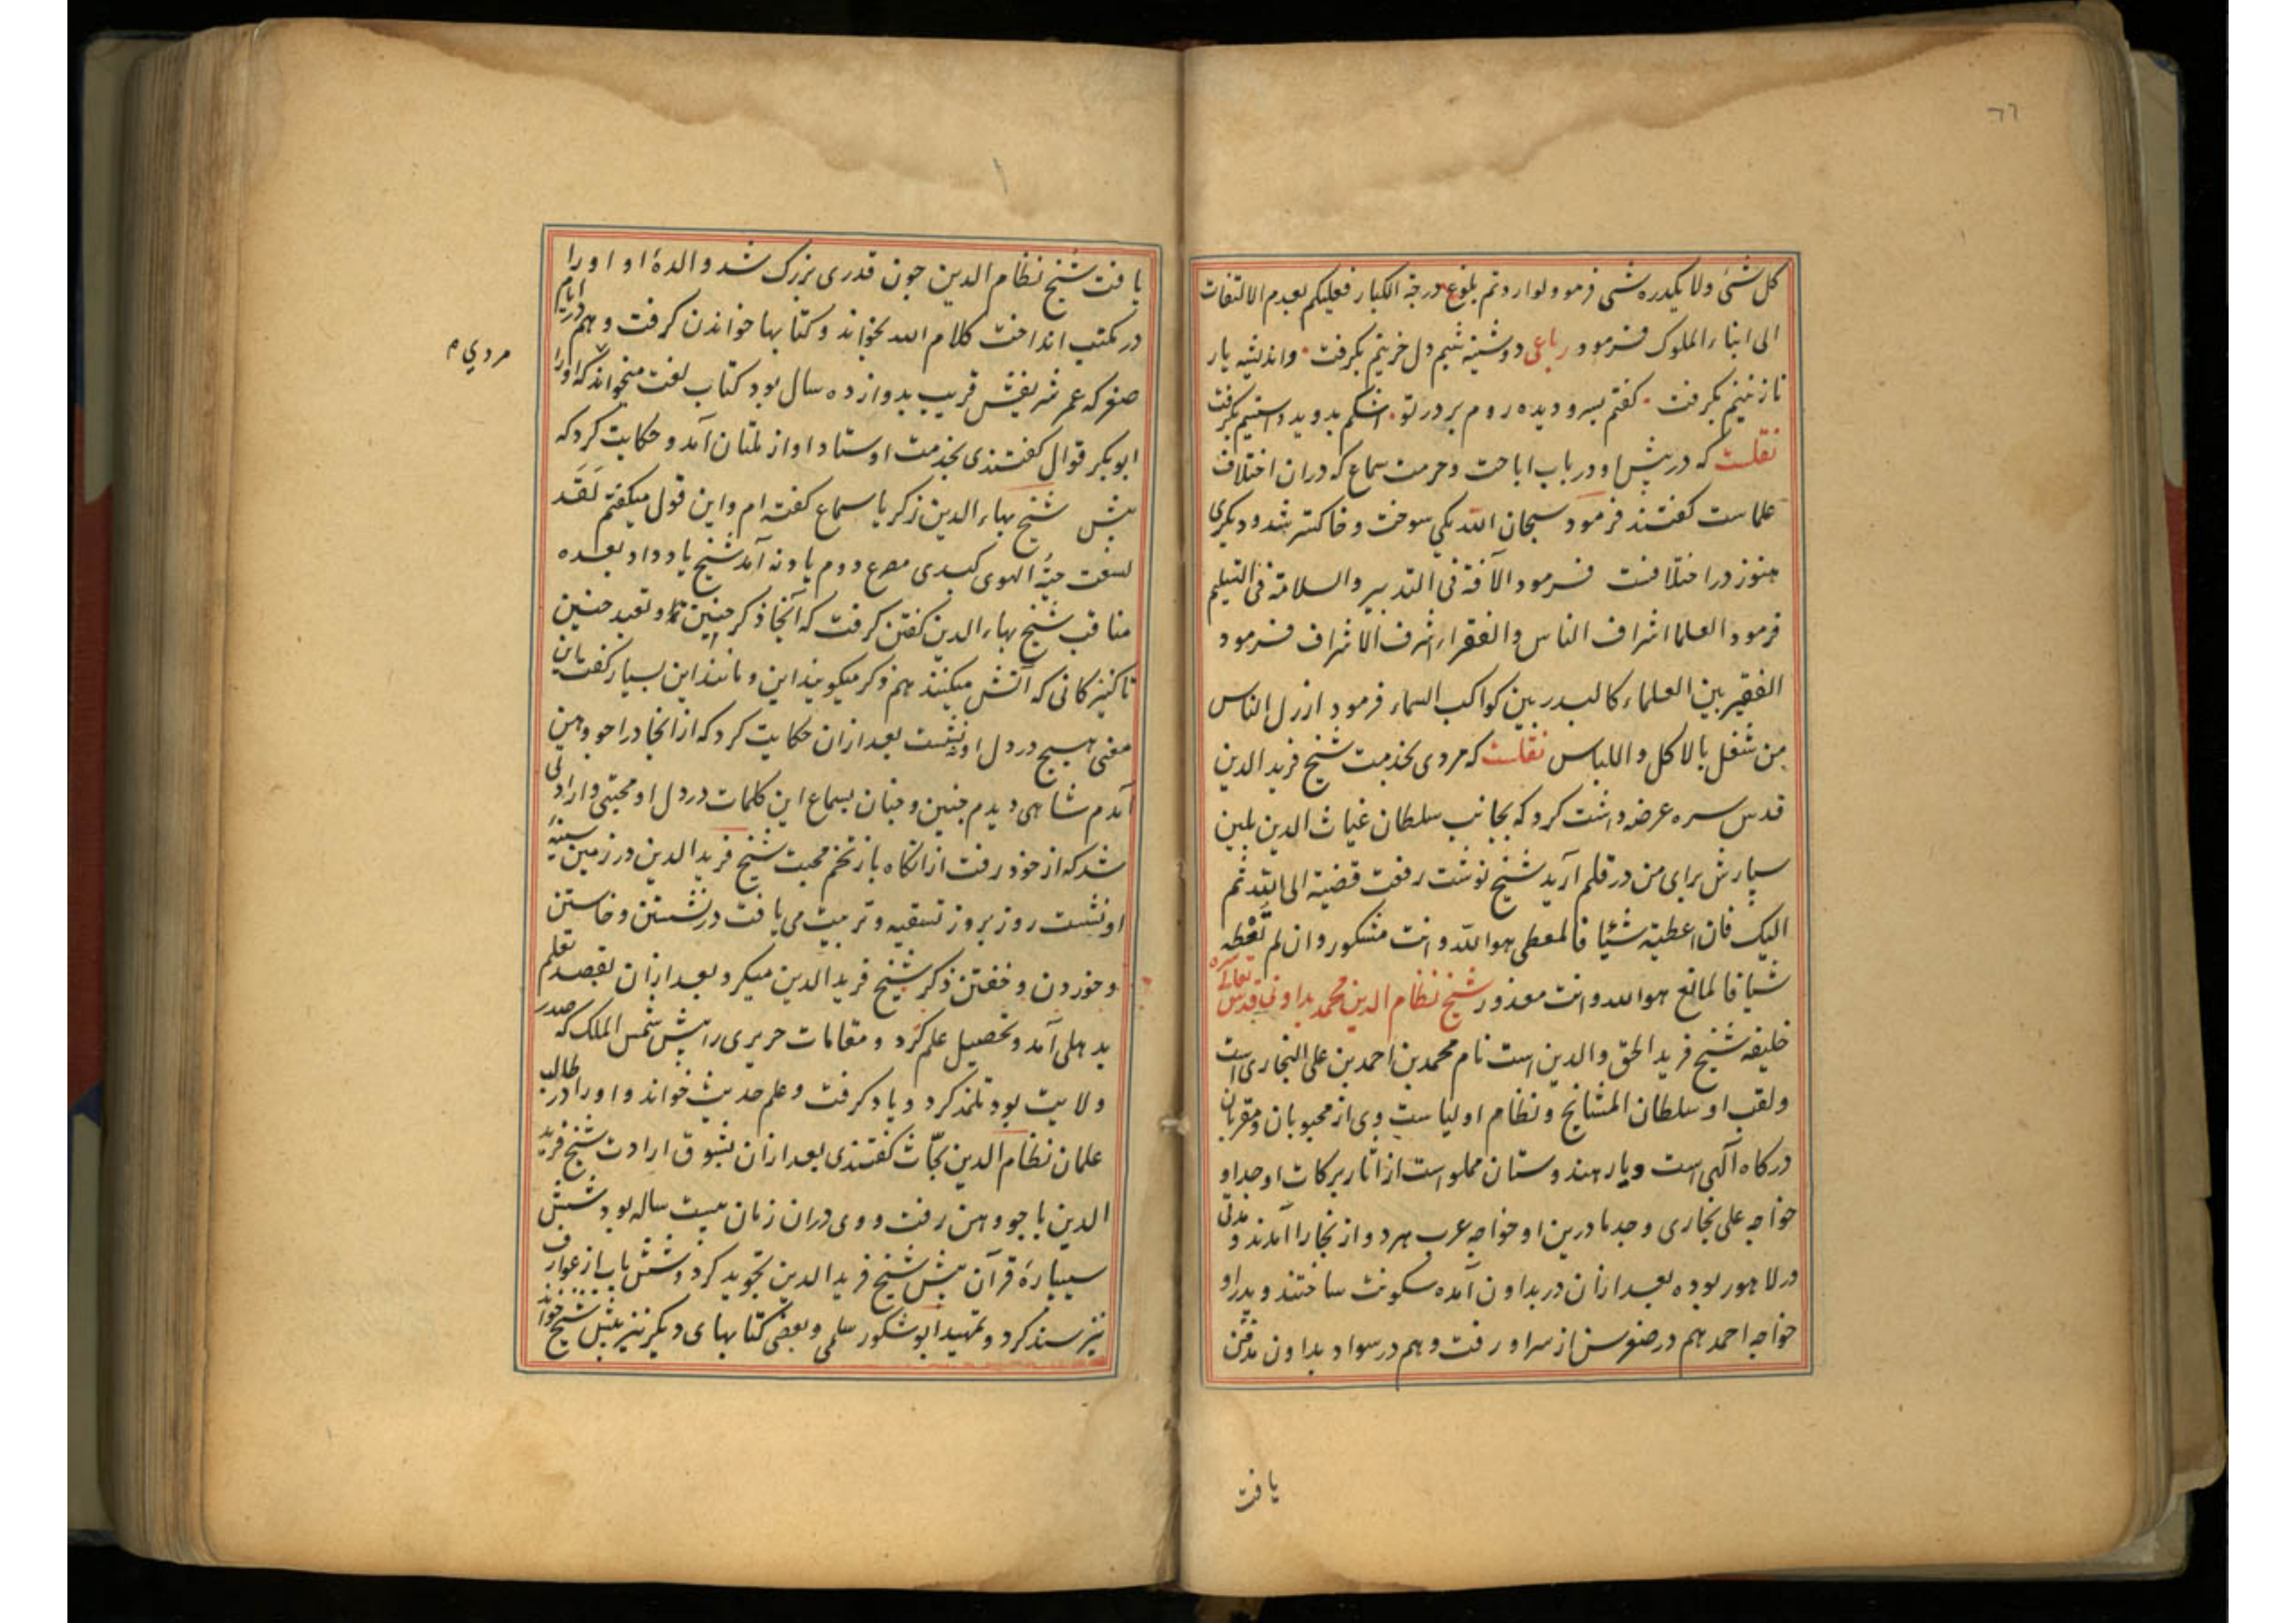 ٦٦
کل شئ ولا یکدره شئ فرمود لو اردتم بلوغ درجة الکبار فعلیکم بعدم الالتفات
الی ابناء الملوک فرمود رباعی دوشینه شبم دل حزینم بگرفت واندیشه یار
نازنینم بگرفت گفتم بسر و دیده روم بر در تو اشکم بدوید و آستینم بگرفت
نقلست که در پیش او در باب اباحت و حرمت سماع که دران اختلاف
علماست گفتند فرمود سبحان الله یکی سوخت و خاکستر شد و دیگری
هنوز در اختلافست فرمود الآفة فی التدبیر والسلامة فی التسلیم
فرمود العلما اشراف الناس والفقراء اشرف الاشراف فرمود
الفقیر بین العلماء کالبدر بین کواکب السماء فرمود ارذل الناس
من شغل بالاکل واللباس نقلست که مردی بخدمت شیخ فرید الدین
قدس سره عرضه داشت کرد که بجانب سلطان غیاث الدین بلبن
سپارش برای من در قلم آرید شیخ نوشت رفعت قضیة الی الله ثم
الیک فان اعطیته شیئا فالمعطی هو الله وانت مشکور وان لم تعطه
شیا فالمانع هو الله وانت معذور شیخ نظام الدین محمد بداونی قدس تعالی سره
خلیفه شیخ فرید الحق والدین است نام محمد بن احمد بن علی البخاری است
ولقب او سلطان المشایخ و نظام اولیاست وی از محبوبان ومقربان
درگاه آلهی است ودیار هندوستان مملو است از اثار برکات او جد او
خواجه علی بخاری وجد مادرین او خواجه عرب هر دو از بخارا آمدند و مدتی
در لاهور بوده بعد ازان در بداون آمده سکونت ساختند و پدر او
خواجه احمد هم در صغر سن از سر او رفت وهم در سواد بداون مدفن
یافت
یافت شیخ نظام الدین چون قدری بزرک شد والدهٔ او او را
در مکتب انداخت کلام الله بخواند وکتابها خواندن گرفت وهم در ایام
صغر که عمر شریفش قریب بدوازده سال بود کتاب لغت میخواند که اورا
مردی م
ابوبکر قوال گفتندی بخدمت اوستاد او از ملتان آمد و حکایت کرد که
پیش شیخ بهاء الدین زکریا سماع گفته ام واین قول میگفتم لقد
لسعت حیة الهوی کبدی مصرع دوم یاد نه آمد شیخ یاد داد بعده
مناقب شیخ بهاء الدین گفتن گرفت که آنجا ذکر چنین و تعبد چنین
تا کنیزکانی که آتش میکنند هم ذکر میگویند این و مانند این بسیار گفت این
معنی هیچ در دل او ننشست بعد ازان حکایت کرد که از انجا در اجودهن
آمدم شاهی دیدم چنین و چنان بسماع این کلمات در دل او محبتی و ارادتی
شد که از خود رفت ازانگاه باز تخم محبت شیخ فرید الدین در زمین سینهٔ
او نشست روز بروز تسقیه و تربیت می یافت در نشستن و خاستن
وخوردن و خفتن ذکر شیخ فرید الدین میکرد بعد ازان بقصد تعلم
بدهلی آمد و تحصیل علم کرد و مقامات حریری را پیش شمس الملک که صدر
ولایت بود تلمذ کرد و یاد گرفت وعلم حدیث خواند و او را در طالب
علمان نظام الدین بحّاث گفتندی بعد ازان بشوق ارادت شیخ فرید
الدین باجودهن رفت و وی دران زمان بیست ساله بود شش
سیپارهٔ قرآن پیش شیخ فرید الدین تجوید کرد وشش باب از عوارف
نیز سند کرد وتمهید ابوشکور سلمی وبعضی کتابهای دیگر نیز پیش شیخ خواند